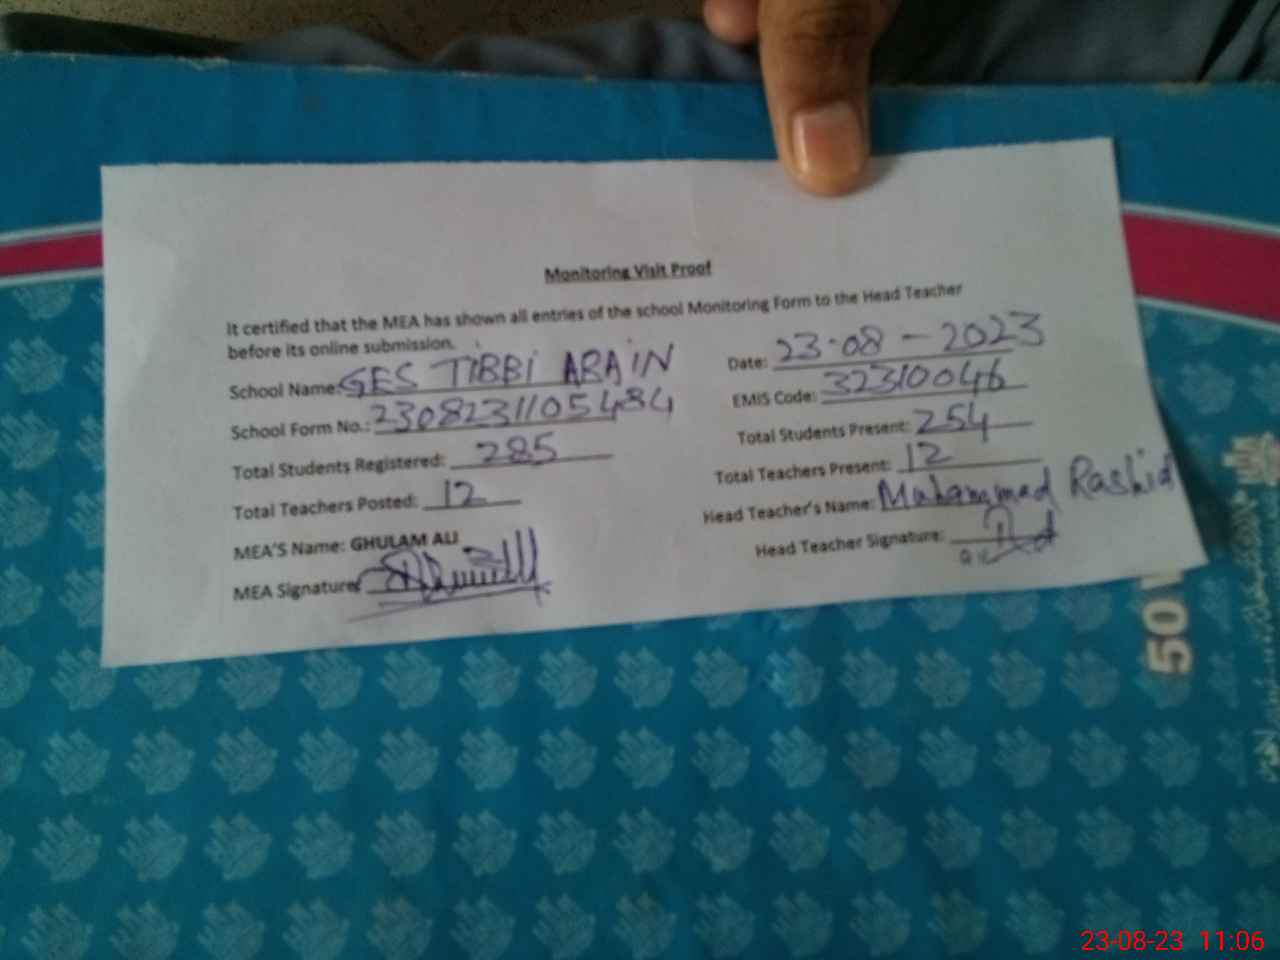 Monitoring Visit Proof
It certified that the MEA has shown all entries of the school Monitoring Form to the Head Teacher
before its online submission.
School Name: GES TIBBI ARAIN
Date: 23-08-2023
School Form No.: 2308231105484
EMIS Code: 32310046
Total Students Registered: 285
Total Students Present: 254
Total Teachers Posted: 12
Total Teachers Present: 12
MEA'S Name: GHULAM ALI
Head Teacher's Name: Muhammad Rashid
MEA Signature:
Head Teacher Signature:
50
23-08-23 11:06